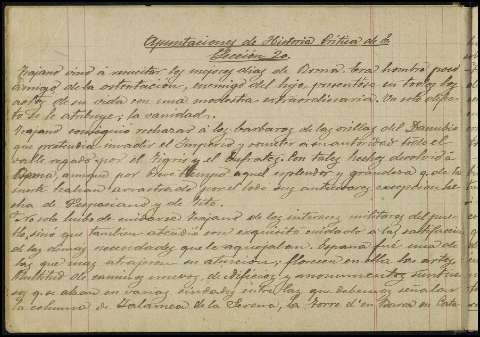 Apuntaciones de Historia Crítica de E
Lección 20.
Trajano vino á resucitar los mejores dias de Roma. Era hombre poco
amigo de la ostentacion, enemigo del lujo, presentóse en todos los
actos de su vida con una modestia extraordinaria. Un solo defec-
to se le atribuye; la vanidad.
Trajano consiguió rechazar á los barbaros de las orillas del Danubio
que pretendia invadir el Imperio y someter á su autoridad todo el
valle regado por el Tigris y el Eufrates. Con tales hechos devolvió á
Roma, aunque por breve tiempo aquel esplendor y grandeza q. de tal
suerte habian arrastrado por el lodo sus antecesores excepcion he-
cha de Vespasiano y de Tito.
No solo hubo de cuidarse Trajano de los intereses militares del pue-
blo, sino que tambien atendió con exquisito cuidado á la satisfaccion
de las demas necesidades que le aquejaban. España fué una de
las que mas atrajeron su atencion; florecen en ella las artes,
multitud de caminos nuevos, de edificios y monumentos suntuo-
sos que alzan en varias ciudades entre las que debemos señalar
la columna de Zalamea de la Serena, la Torre d'en Barra en Cata